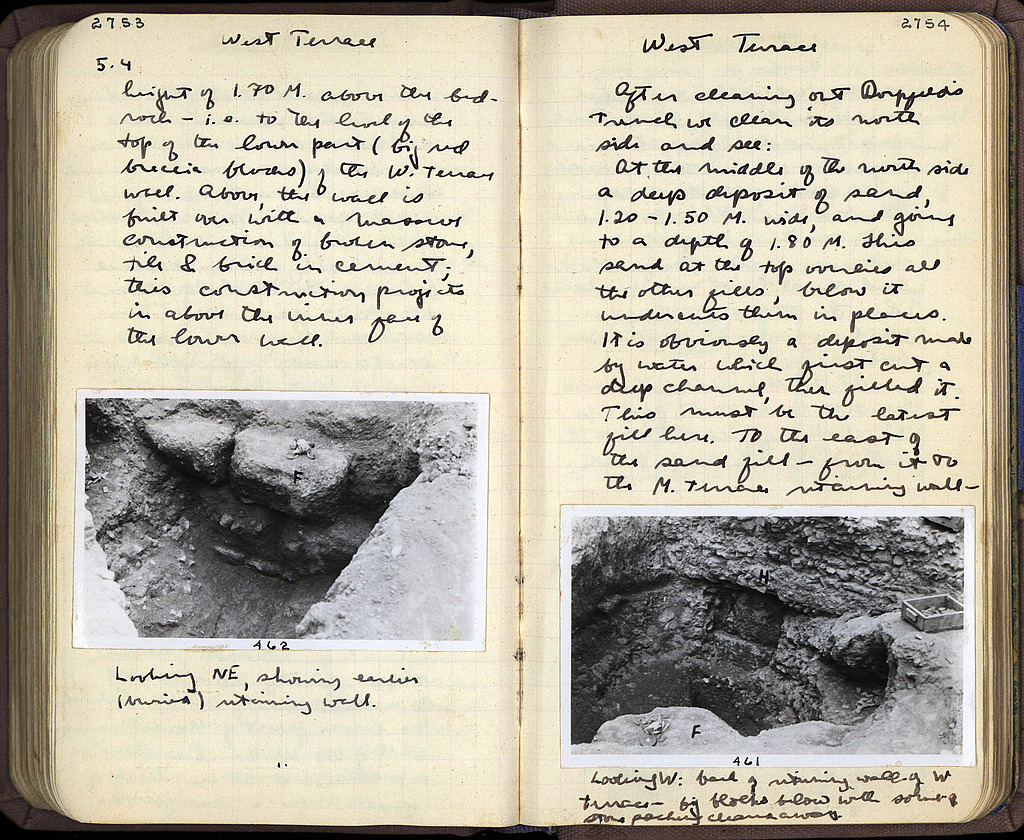 2753
West Terrace
5.4
height of 1.70 M. above the bed-
rock – i.e. to the level of the
top of the lower part (big red
breccia blocks) of the W. Terrace
wall. Above, the wall is
built over with a massive
construction of broken stone,
tile & brick in cement;
this construction projects
in above the inner face of
the lower wall.
F
462
Looking NE, showing earlier
(buried) retaining wall.
2754
West Terrace
After cleaning out Dorpfeld's
Trench we clean its north
side and see:
At the middle of the north side
a deep deposit of sand,
1.20 – 1.50 M. wide, and going
to a depth of 1.80 M. This
sand at the top overlies all
the other fills, below it
undercuts them in places.
It is obviously a deposit made
by water which first cut a
deep channel, then filled it.
This must be the latest
fill here. To the east of
the sand fill – from it to
the M. Terrace retaining wall –
H
F
461
Looking W: back of retaining wall of W
Terrace – big blocks below with some of
stone packing cleaned away